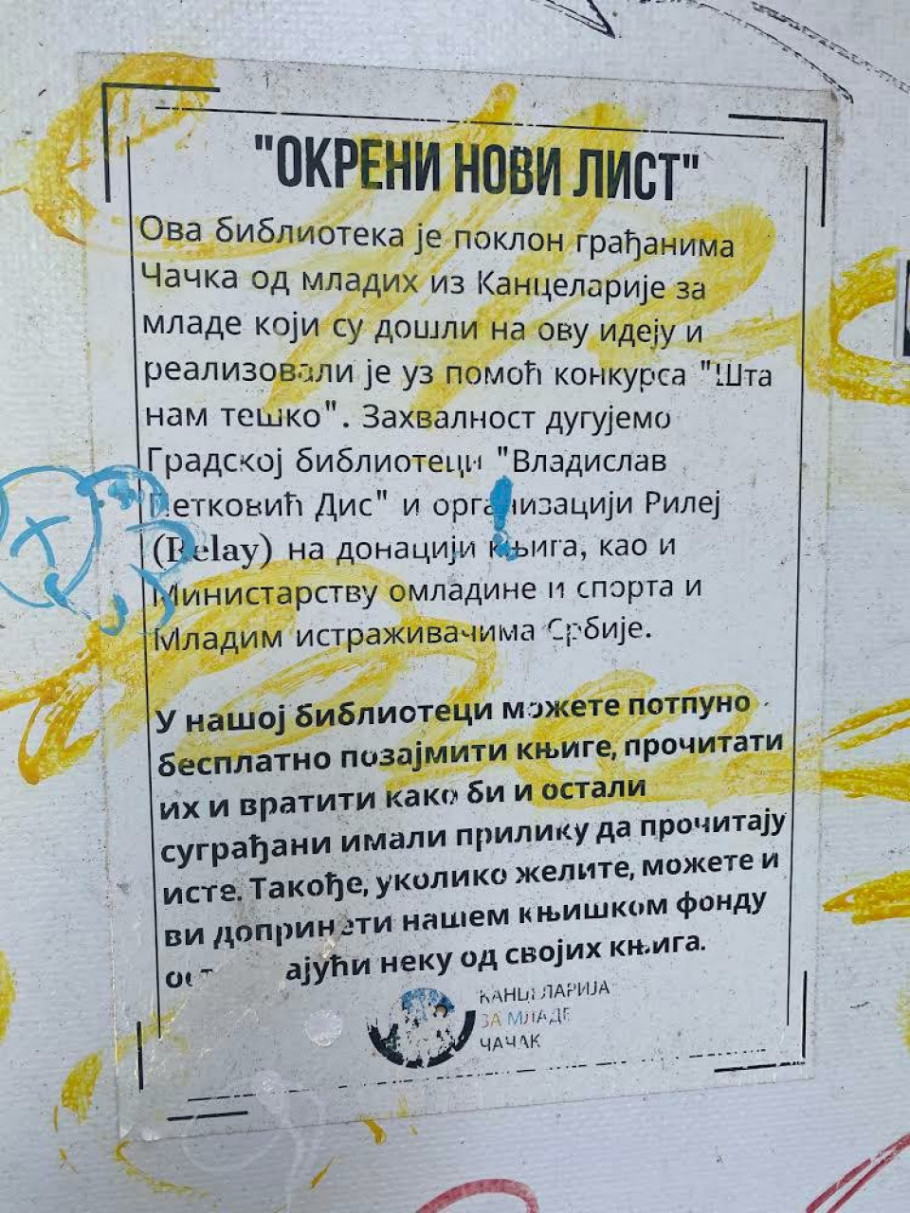 "ОКРЕНИ НОВИ ЛИСТ"
Ова библиотека је поклон грађанима
Чачка од младих из Канцеларије за
младе који су дошли на ову идеју и
реализовали је уз помоћ конкурса "Шта
нам тешко". Захвалност дугујемо
Градској библиотеци "Владислав
Петковић Дис" и организацији Рилеј
(Relay) на донацији књига, као и
Министарству омладине и спорта и
Младим истраживачима Србије.
У нашој библиотеци можете потпуно
бесплатно позајмити књиге, прочитати
их и вратити како би и остали
суграђани имали прилику да прочитају
исте. Такође, уколико желите, можете и
ви допринети нашем књишком фонду
неку од својих књига.
КАНЦЕЛАРИЈА
ЗА МЛАДЕ
ЧАЧАК